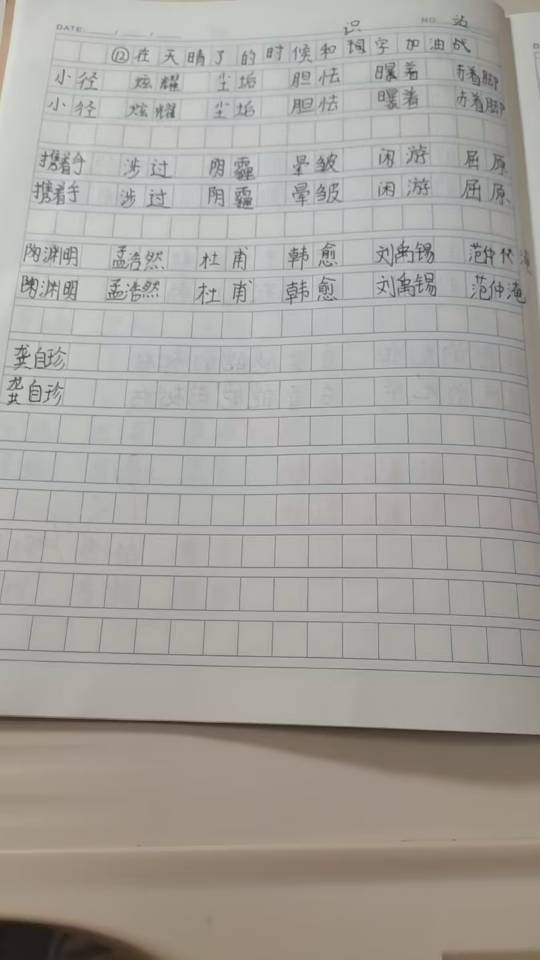 DATE: / / NO. 边
识
⑫在天晴了的时候和词字加油战
小径 炫耀 尘垢 胆怯 曝着 赤着脚
小径 炫耀 尘垢 胆怯 曝着 赤着脚
携着手 涉过 阴霾 晕皱 闲游 屈原
携着手 涉过 阴霾 晕皱 闲游 屈原
陶渊明 孟浩然 杜甫 韩愈 刘禹锡 范仲淹
陶渊明 孟浩然 杜甫 韩愈 刘禹锡 范仲淹
龚自珍
龚自珍